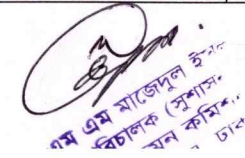 এম এম মাজেদুল ইস
রিচালক (সুশাস
য়ন কমিশ
ঢাক